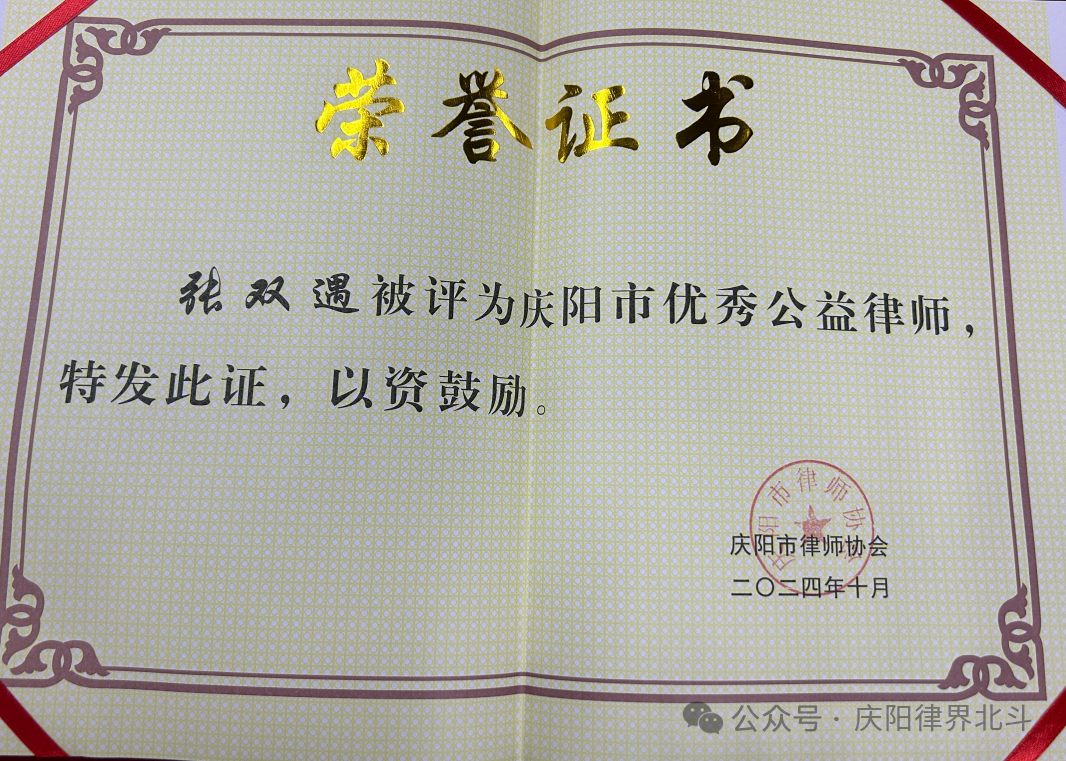 荣誉证书
张双遇被评为庆阳市优秀公益律师，
特发此证，以资鼓励。
庆阳市律师协会
庆阳市律师协会
二〇二四年十月
公众号·庆阳律界北斗